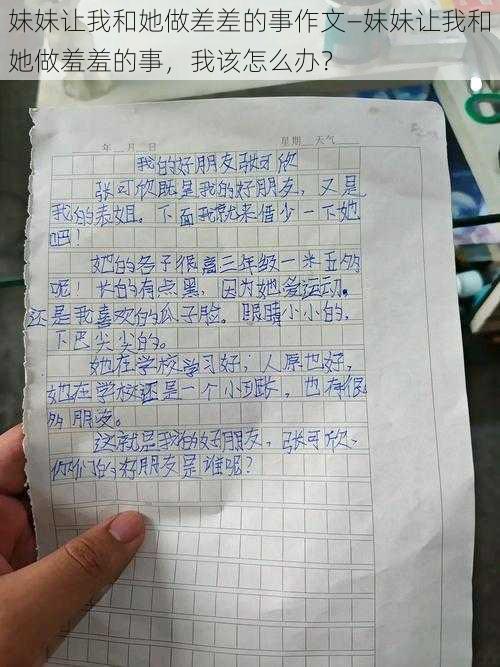 妹妹让我和她做差差的事作文—妹妹让我和
她做羞羞的事，我该怎么办？
年 月 日 星期 天气
我的好朋友张可欣
张可欣既是我的好朋友，又是
我的表姐。下面我就来借少一下她
吧！
她的各子很高三年级一米五多
呢！长的有点黑，因为她爱运动。
还是我喜欢的瓜子脸。眼睛小小的，
下巴尖尖的。
她在学校学习好；人原也好，
她在学校还是一个小班长，也有很
多朋友。
这就是我的好朋友，张可欣、
你们的好朋友是谁呢？